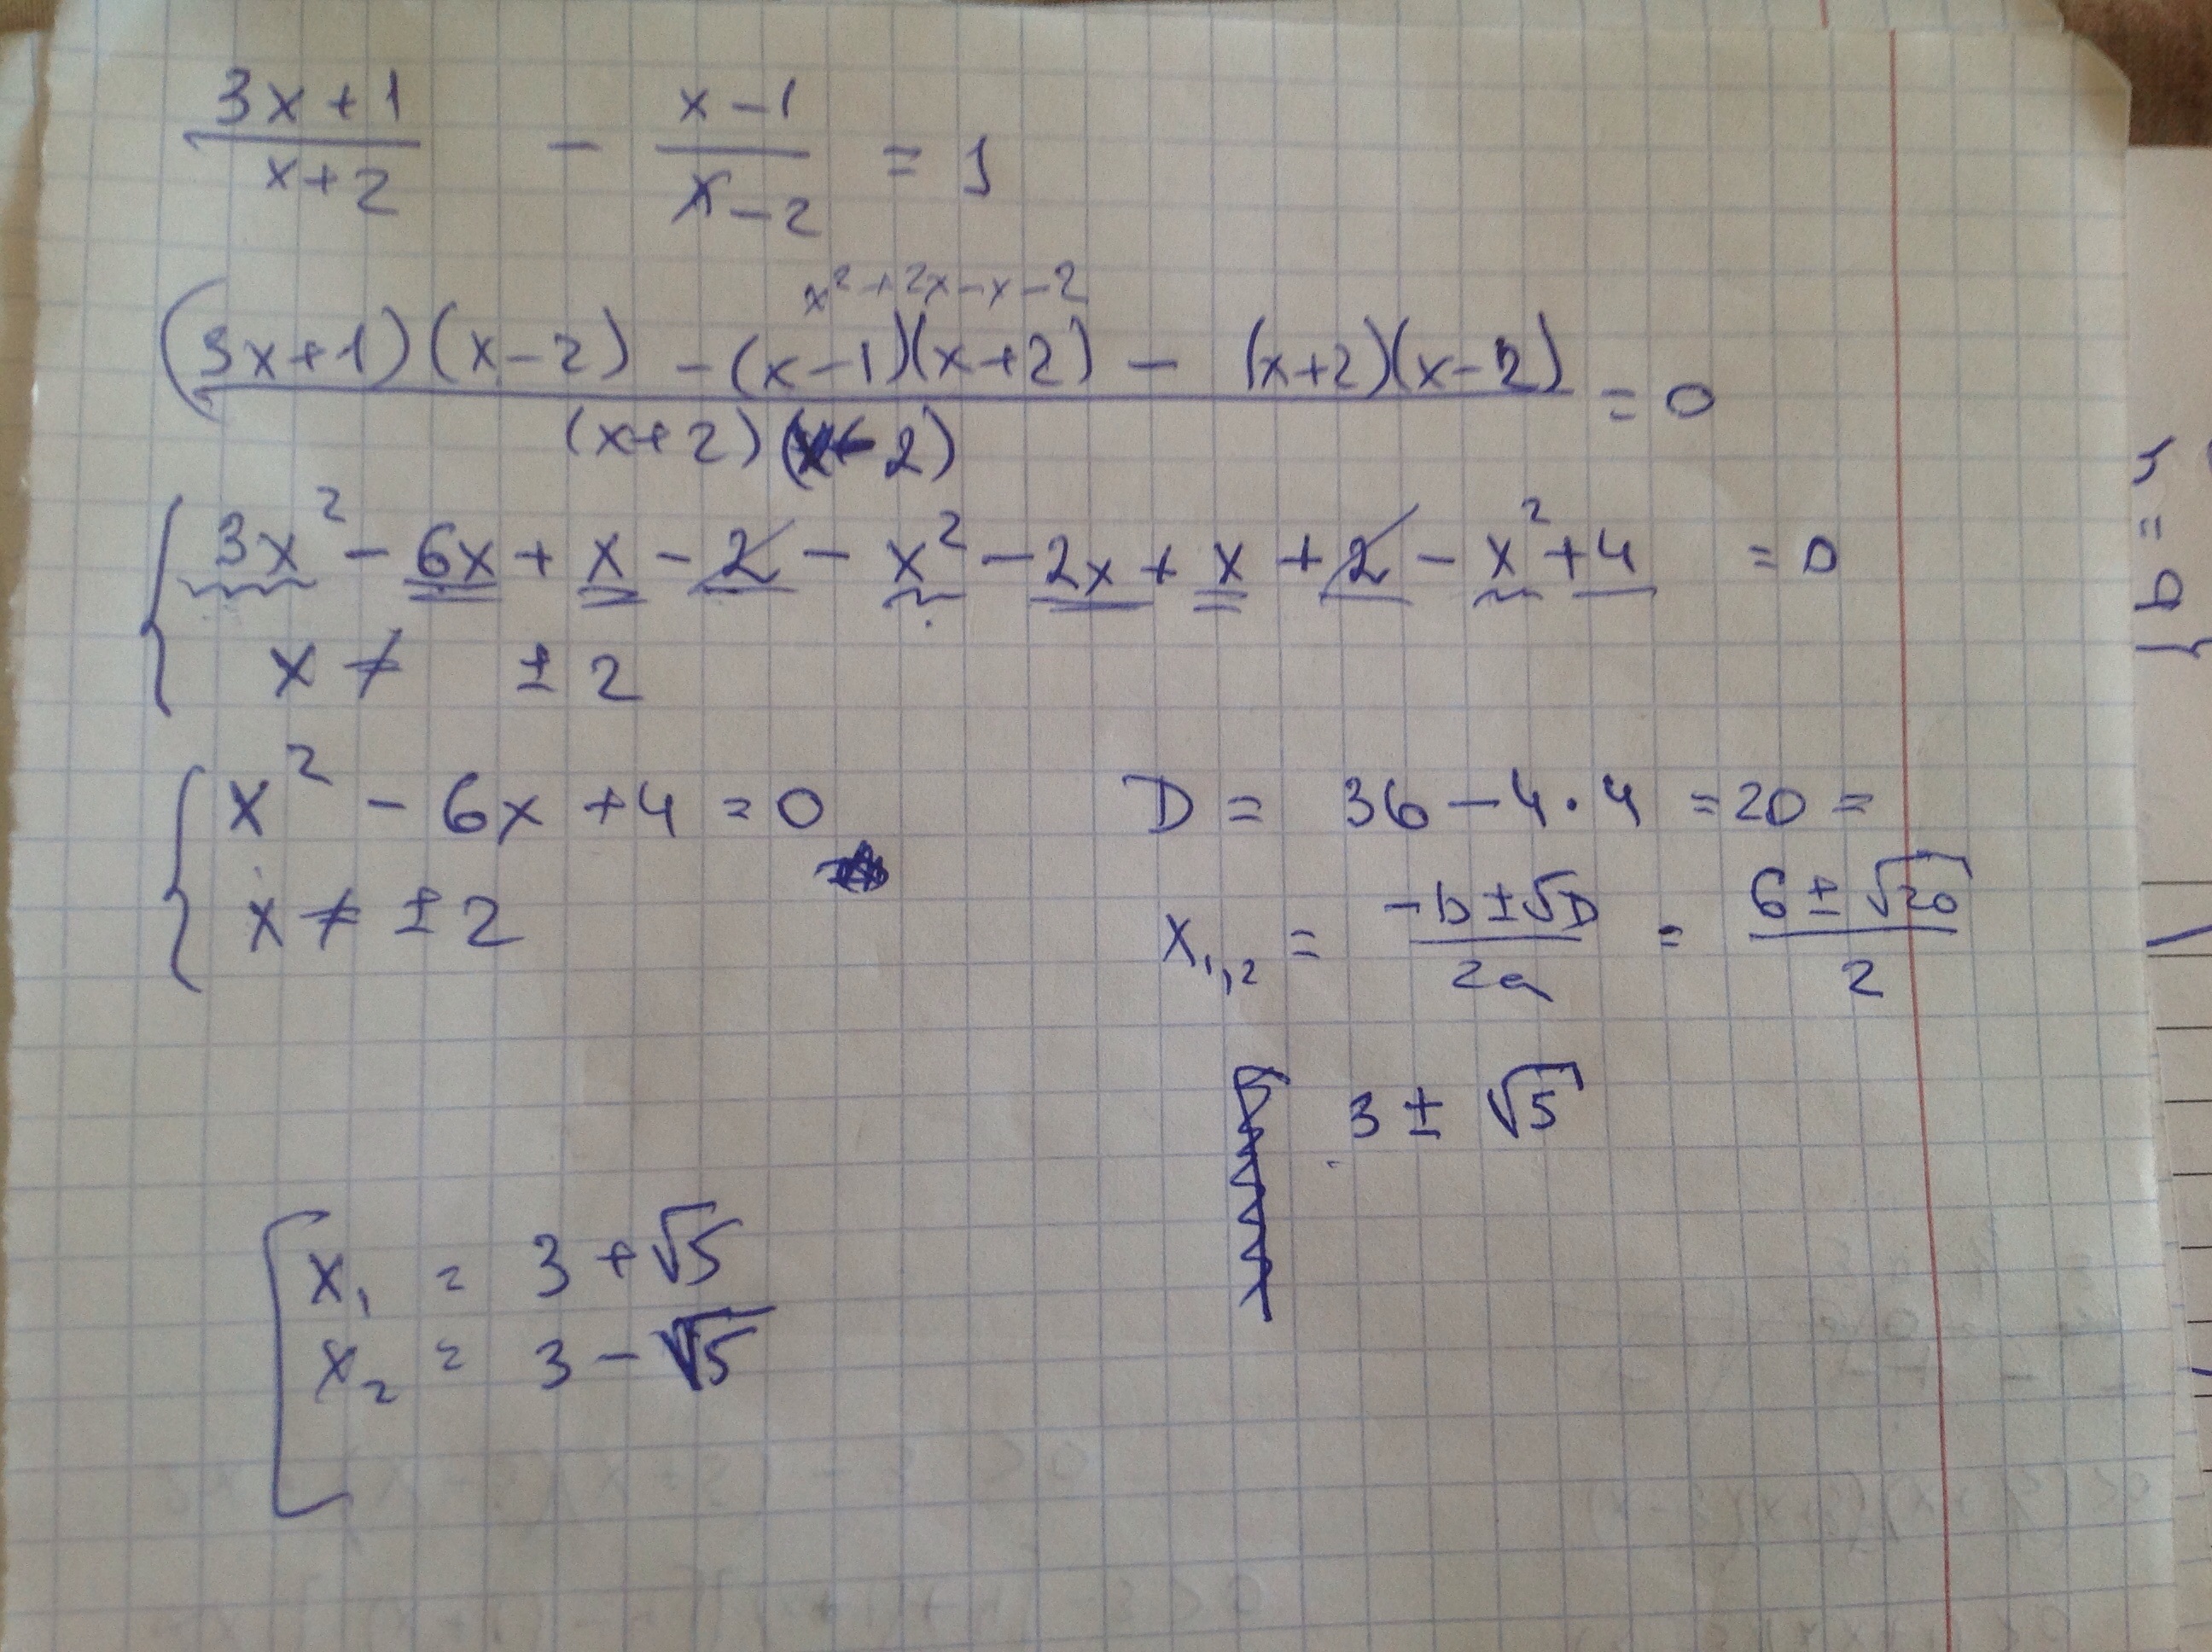 3x+1 / x+2 - x-1 / x-2 = 1
x² + 2x - x - 2
(3x+1)(x-2) - (x-1)(x+2) - (x+2)(x-2) / (x+2)(x-2) = 0
{ 3x² - 6x + x - 2 - x² - 2x + x + 2 - x² + 4 = 0
x ≠ ±2
{ x² - 6x + 4 = 0
x ≠ ±2
D = 36 - 4·4 = 20 =
x₁,₂ = -b ± √D / 2a = 6 ± √20 / 2
3 ± √5
[ x₁ = 3 + √5
x₂ = 3 - √5